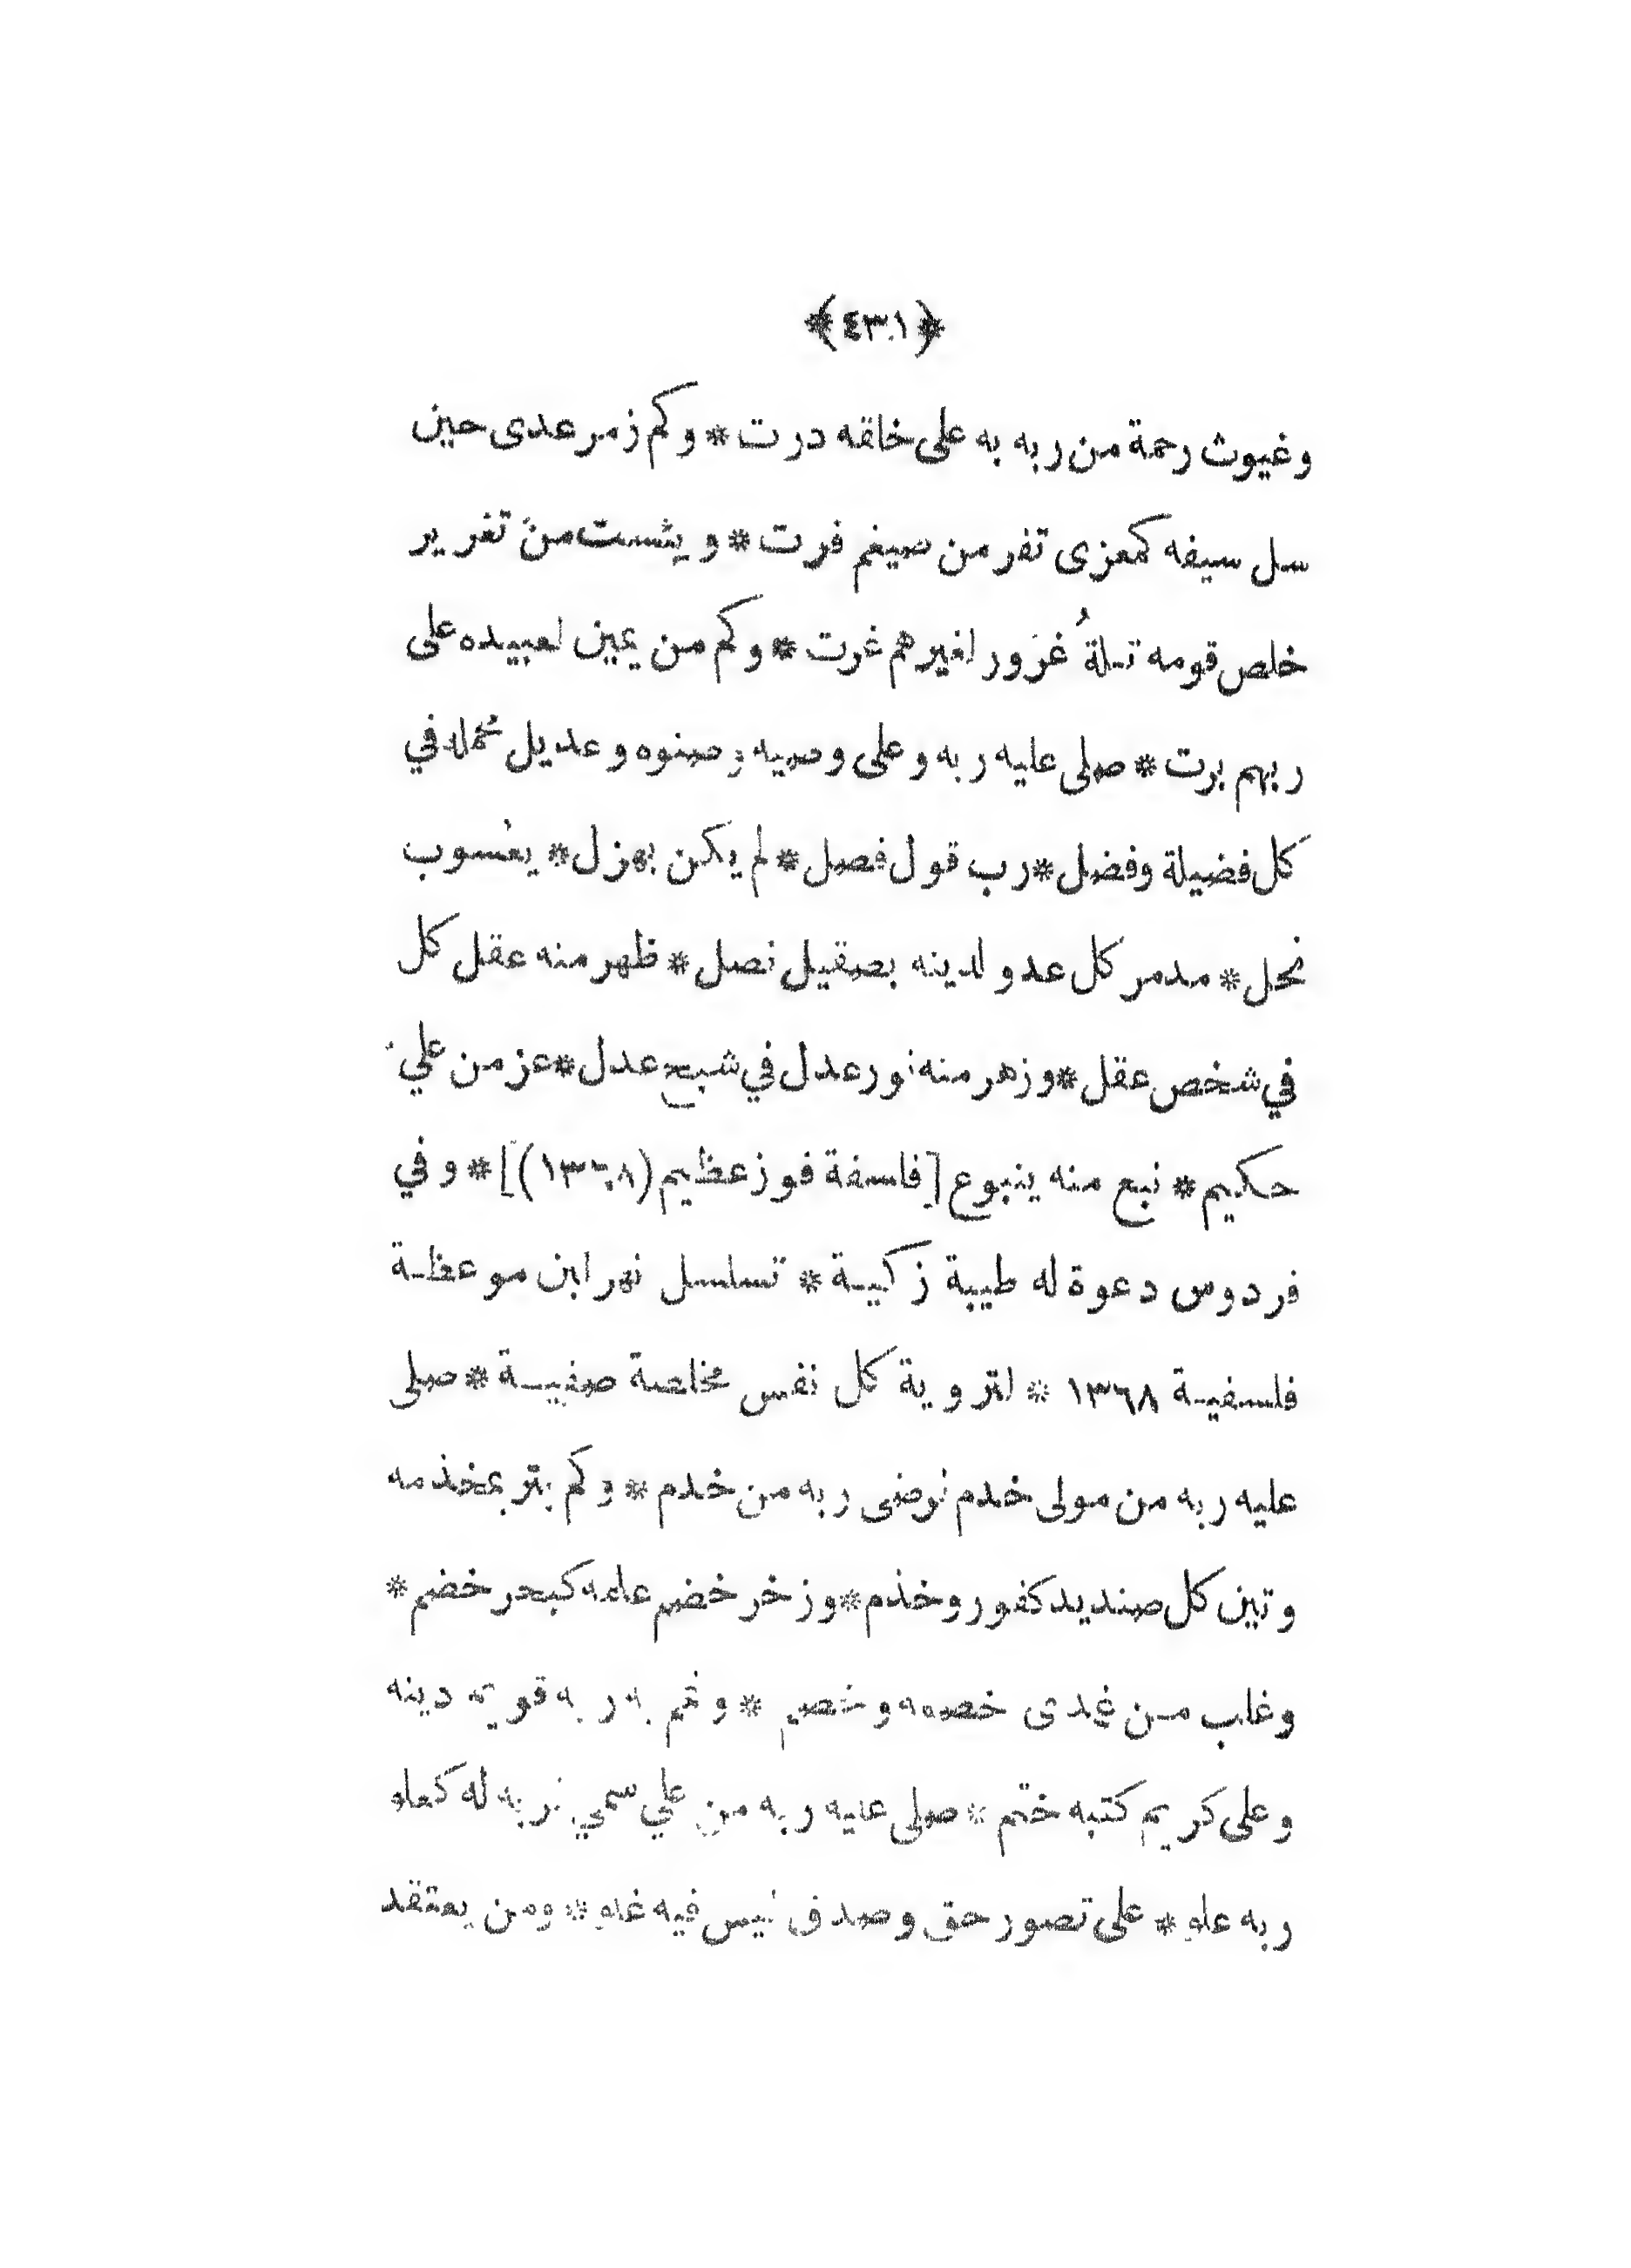 ﴿٤٣١﴾
وغيوث رحمة من ربه به على خلقه درت * وكم زمر عدى حين
سل سيفه كمعزى تفر من ضيغم فرت * ويئست من تغرير
خلص قومه تلة غرور لغيرهم غرت * وكم من يمين لعبيده على
ربهم برت * صلى عليه ربه وعلى وصيه وصنوه وعديل محمد في
كل فضيلة وفضل * رب قول فصل * لم يكن بهزل * يعسوب
نحل * مدمر كل عدو لدينه بصقيل نصل * ظهر منه عقل كل
في شخص عقل * وزهر منه نور عدل في شبح عدل * عز من علي
حكيم * نبع منه ينبوع [فلسفة فوز عظيم (١٣٦٨)] * وفي
فردوس دعوة له طيبة زكية * تسلسل نهر لبن موعظة
فلسفية ١٣٦٨ * لتروية كل نفس مخلصة صفية * صلى
عليه ربه من مولى خدم نرضى ربه من خدم * وكم بتر بمخذمه
وتين كل صنديد كفور وخذم * وزخر خضم علمه كبحر خضم *
وغلب من عدى خصمه وخصم * وتم به ربه قويم دينه
وعلى كريم كتبه ختم * صلى عليه ربه من علي سمي ربه له كعلو
ربه علو * على تصور حق وصدق ليس فيه غلو * ومن يعتقد